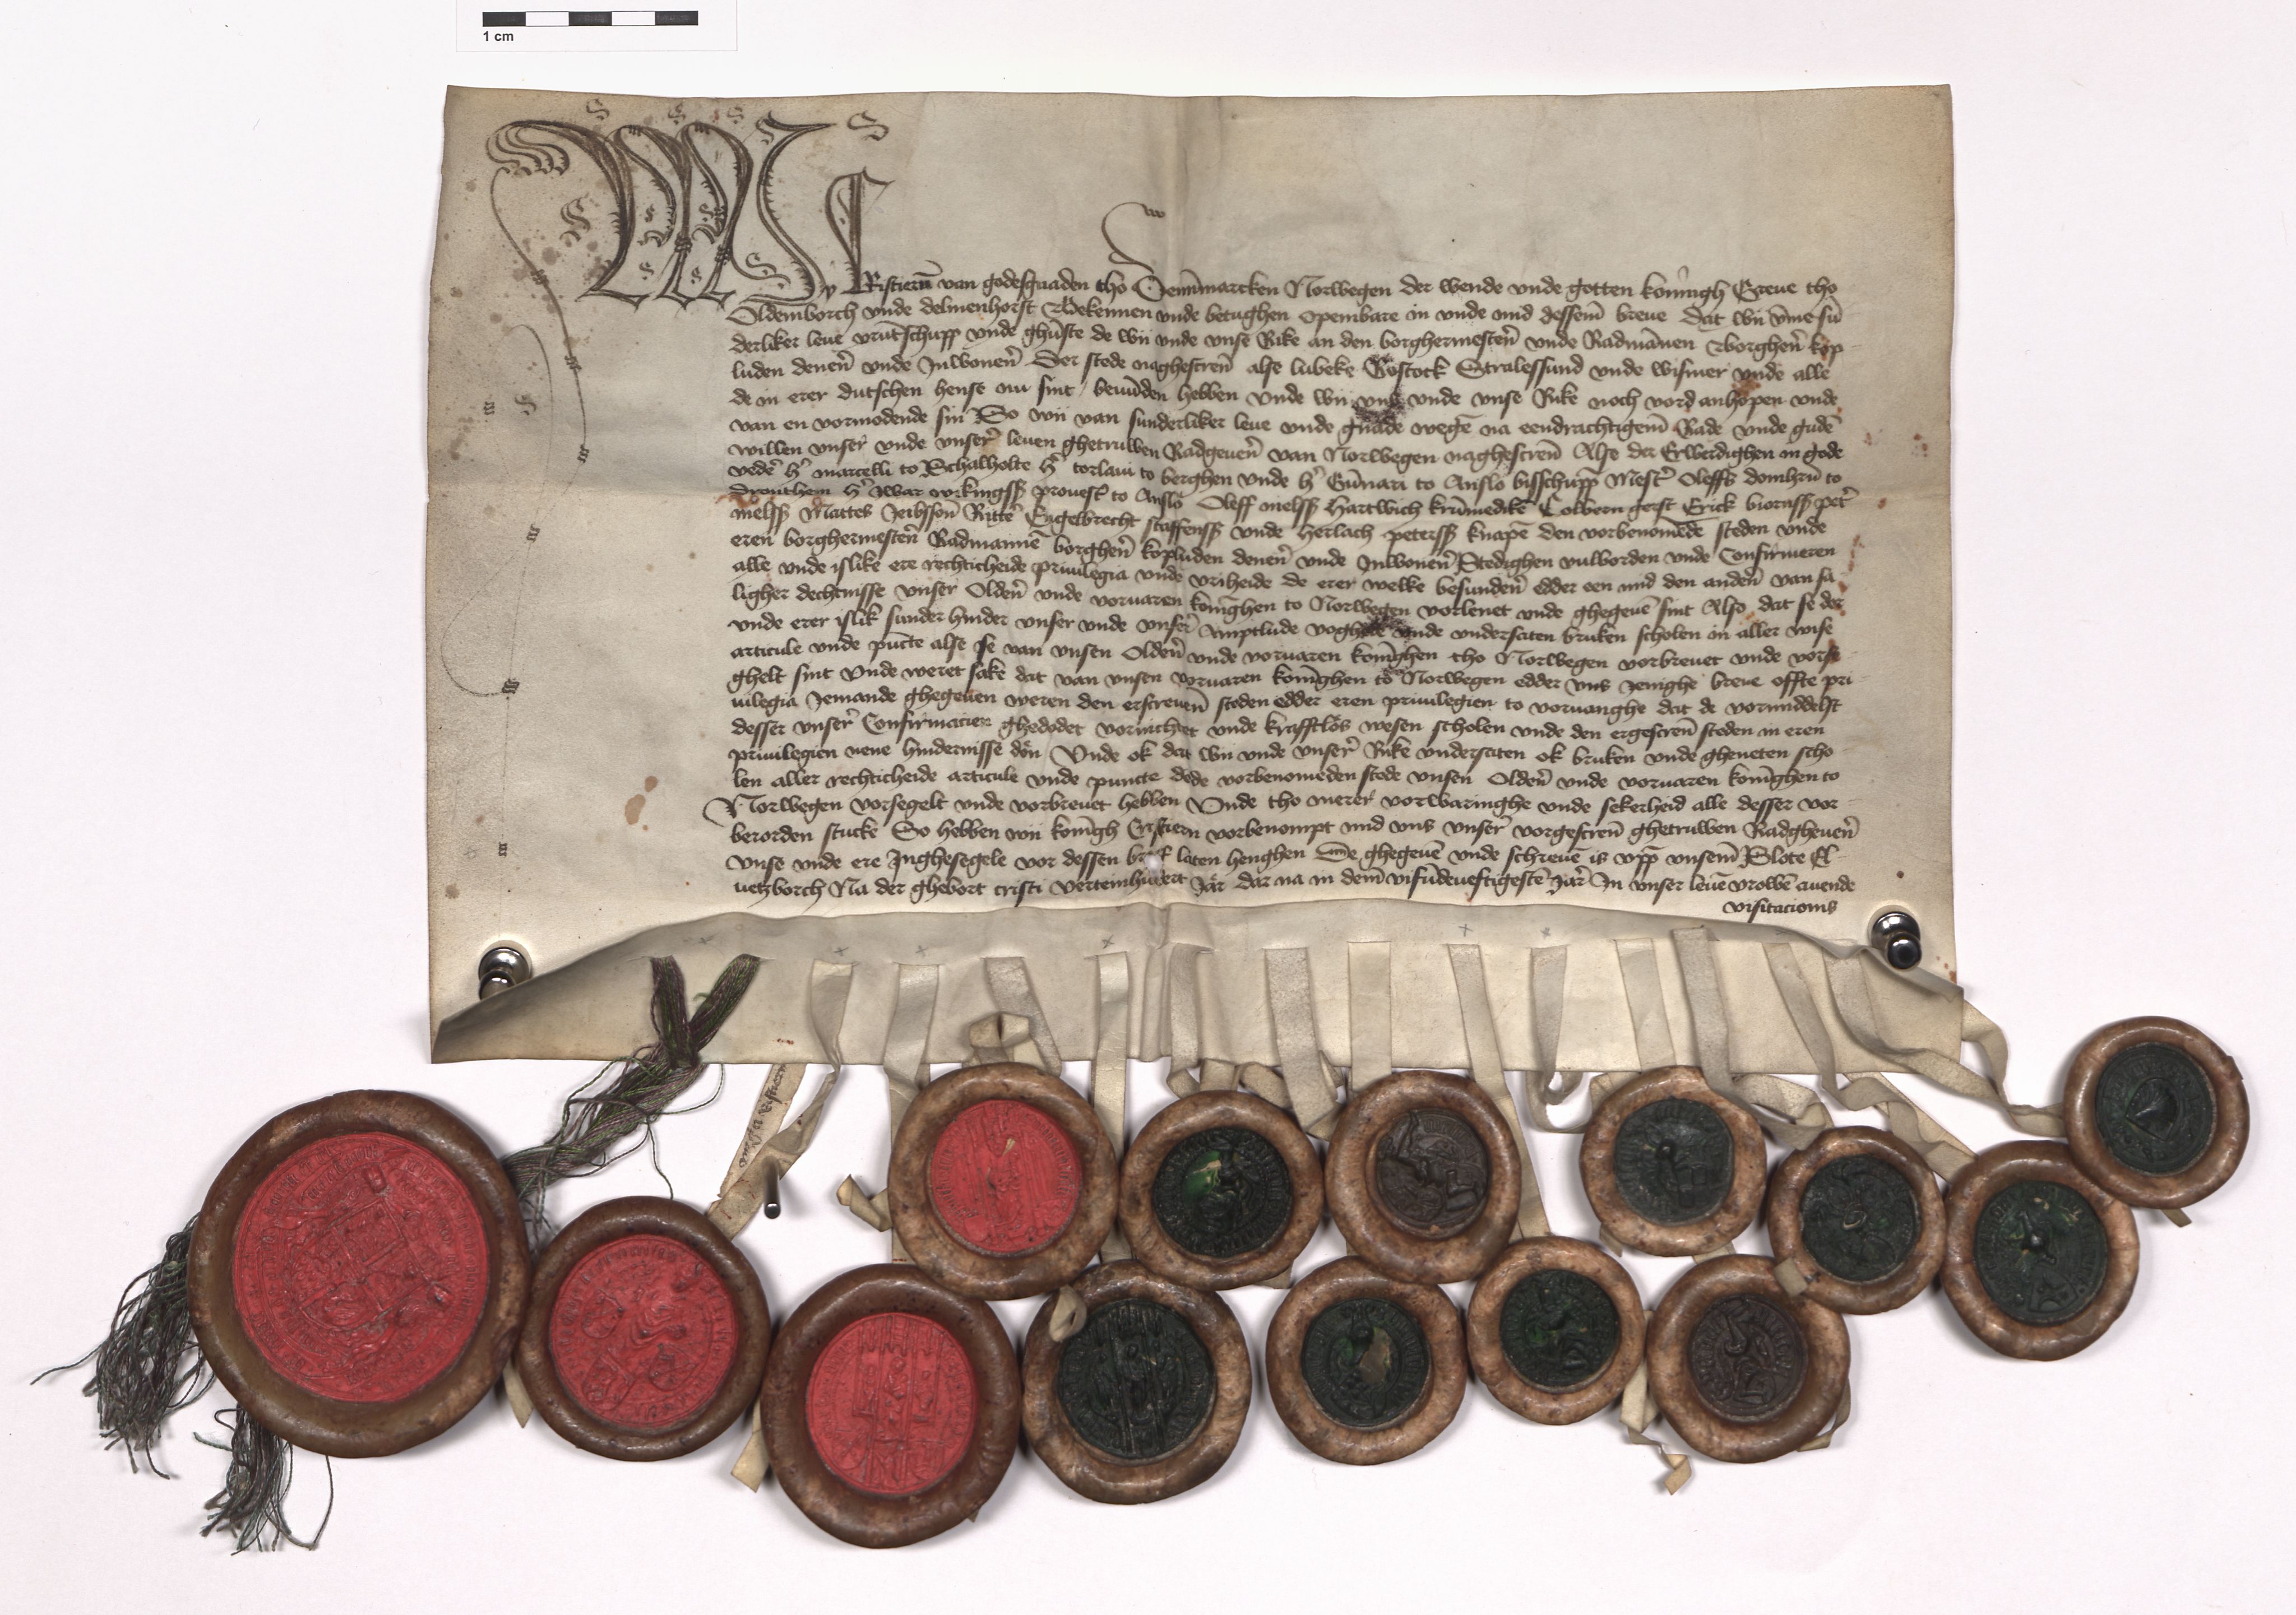 1 cm
Wy Cristiern̄ van godesgnaden tho Dennmarcken Norwegen der wende vnde gotten konn̄igh Greue tho
Oldemborch vnde delmenhorst Bekennen vnde betughen openbare in vnde mid dessem̄ breue Dat wii v̄me sū
derliker leue vrūtschupp vnde ghūste de wii vnde vnse Rike an den borghermesteren̄ vnde Radmānen Borgheren̄ kop
luden deneren̄ vnde Inwoneren̄ Der stede naghescreuen̄ alse lubeke Rostock Stralessund vnde wismer vnde alle
de in erer dutschen hense nu sint / beuūden hebben vnde wii vns vnde vnse Rike noch vord anhopen vnde
van en vormodende sin So wii van sunderliker leue vnde gnade wegē na eendrachtigem̄ Rade vnde gudē
willen vnser vnde vnser leuen ghetruwen Radgeueren̄ van Norwegen naghescreuen̄ Alse der Erwerdighen in gode
vedē h' marcelli to Schalholte h' torlaui to berghen vnde h' Gūnari to Anslo bisschupp̄ Mest' Oleffs domhern̄ to
Drunthem h' iwar vikingss prouest to Anslo Oleff nielss Hartwich krūmedikē Colbern gerst Erick biornss pet'
nielss Mattes Jeibsson Rittē Engelbrecht staffenss vnde Herlach peterss knapē den vorbenomēde steden vnde
eren borghermesteren̄ Radmannē borgheren̄ kopluden deneren̄ vnde Inwoneren̄ Stedighen vulworden vnde Confirmeren
alle vnde islike ere rechticheide priuilegia vnde vriheide de erer welke besunderen̄ edder een mid den anderen̄ van sa
ligher dechtnisse vnser Olderen̄ vnde voruaren konīghen to Norwegen vorlenet vnde ghegeuē sint Also dat se der
vnde erer islik sunder hinder vnser vnde vnser Amptlude voghede vnde vndersaten bruken scholen in aller wise
articule vnde pūcte alse se van vnsen Olderen̄ vnde voruaren konīghen tho Norwegen vorbreuet vnde vorse
ghelt sint Vnde weret sake dat van vnsen voruaren konīghen to Norwegen edder vns jenighe breue offte pri
uilegia Jemande ghegeuen weren den erscreuen̄ steden edder eren priuilegien to voruanghe dat de vormiddelst
desser vnser Confirmacien ghedodet vornichtet vnde krafftlos wesen scholen vnde den ergescreuen̄ steden in eren
priuilegien nene hindernisse don Vnde ok dat wii vnde vnser Rike vndersaten ok bruken vnde gheneten scho
len aller rechticheide articule vnde puncte dede vorbenomeden stede vnsen Olderen̄ vnde voruaren konīghen to
Norwegen vorsegelt vnde vorbreuet hebben Vnde tho merer vorwaringhe vnde sekerheid alle desser vor
berorden stucke So hebben wii konīgh Cristiern vorbenompt mid vns vnser vorgescreuen̄ ghetruwen Radgheueren̄
vnse vnde ere Inghesegele vor dessen breff laten henghen De ghegeuē vnde schreuē is vpp̄ vnsem̄ Slote El
uetzborch Na der ghebort cristi verteinhūdert Jar dar na in dem̄ vifūdeueftigestē Jar In vnser leuē vrowē auende
visitacionis